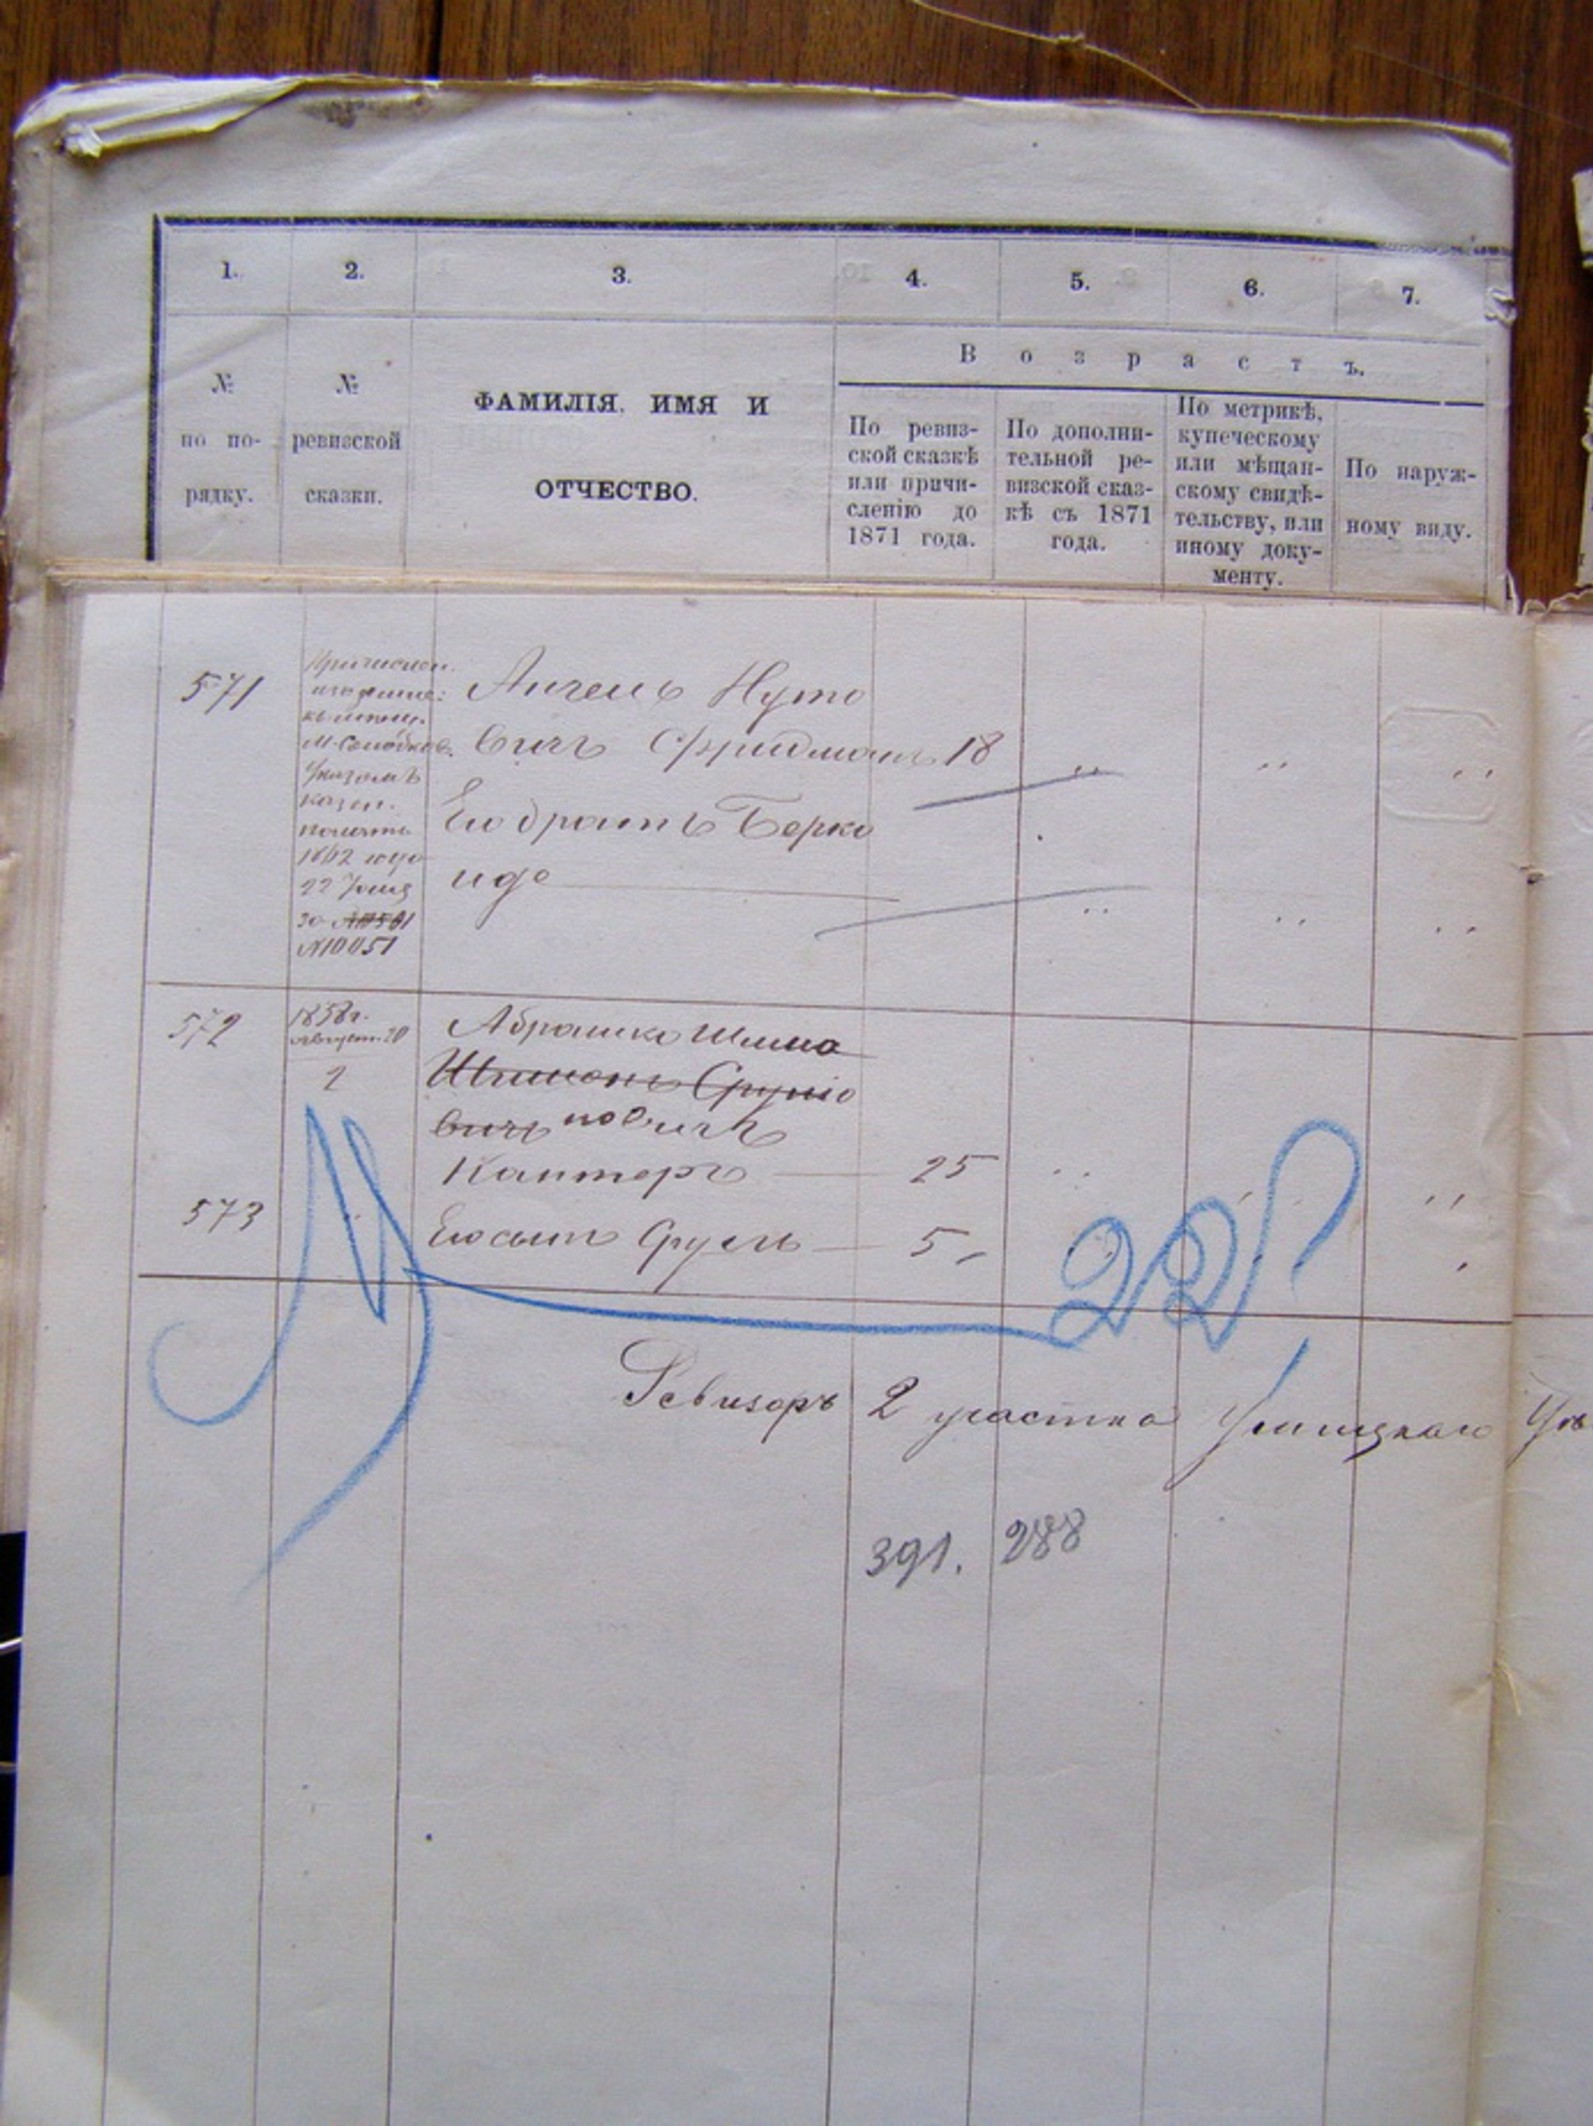 1. 2. 3. 4. 5. 6. 7.
Возрастъ.
№ по порядку.
№ ревизской сказки.
ФАМИЛІЯ, ИМЯ И
ОТЧЕСТВО.
По ревиз-
ской сказкѣ
или причи-
сленію до
1871 года.
По дополни-
тельной ре-
визской сказ-
кѣ съ 1871
года.
По метрикѣ,
купеческому
или мѣщан-
скому свидѣ-
тельству, или
иному доку-
менту.
По наруж-
ному виду.
571
Указомъ
казен.
палаты
1862 года
22
за №
№10051
Анчель Нуто
вичъ Фридманъ 18
Его братъ Берко
идо
572
1858 г.
2
Абрашко Шлио
вичъ
Канторъ 25
573
Его сынъ Сруль 5
22
Ревизоръ 2 участка Ушицкаго
391. 288